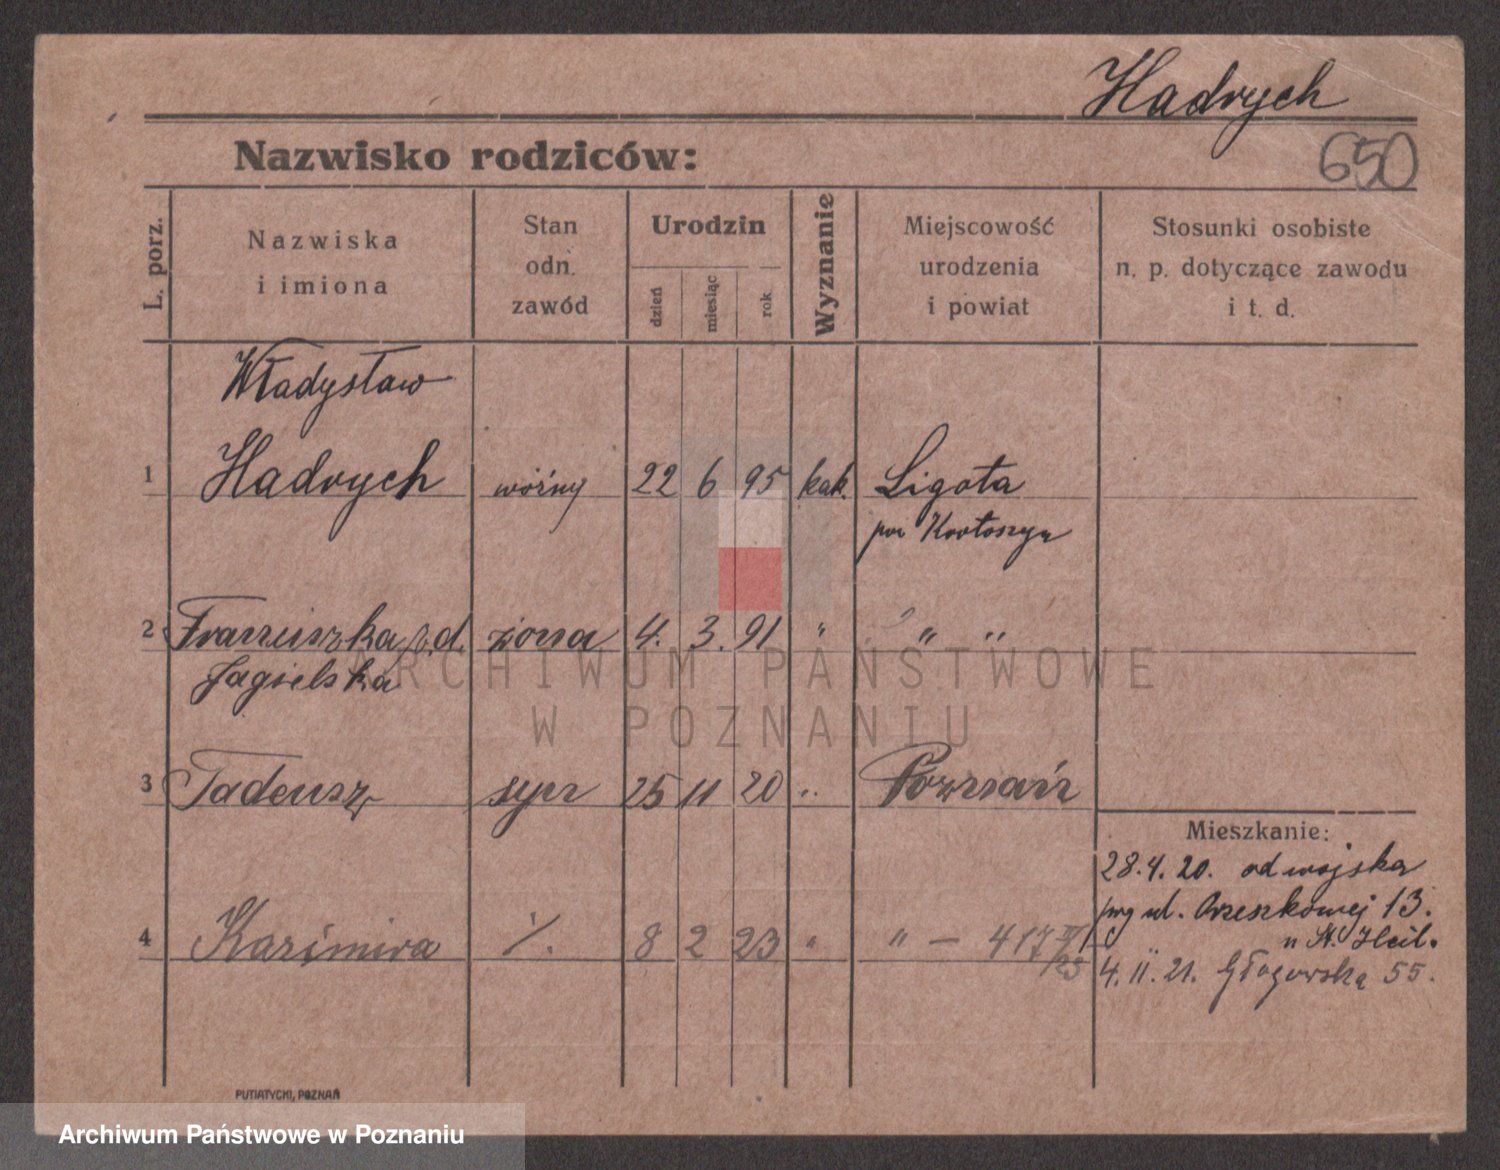 Hadrych
650
Nazwisko rodziców:
L. porz.
Nazwiska
i imiona
Stan
odn.
zawód
Urodzin
dzień
miesiąc
rok
Wyznanie
Miejscowość
urodzenia
i powiat
Stosunki osobiste
n. p. dotyczące zawodu
i t. d.
Władysław
1 Hadrych woźny 22 6 95 kat. Ligota
pow Krotoszyn
2 Franciszka z d. żona 4. 3. 91 " " "
Jagielska
3 Tadeusz syn 25 11 20 " Poznań
4 Kazimira /. 8 2 23 " " — 417 III/23
Mieszkanie:
28.4.20. od wojska
przy ul. Orzeszkowej 13.
u St. Heil.
4.II.21. Głogowska 55.
PUTIATYCKI, POZNAŃ
ARCHIWUM PAŃSTWOWE
W POZNANIU
Archiwum Państwowe w Poznaniu